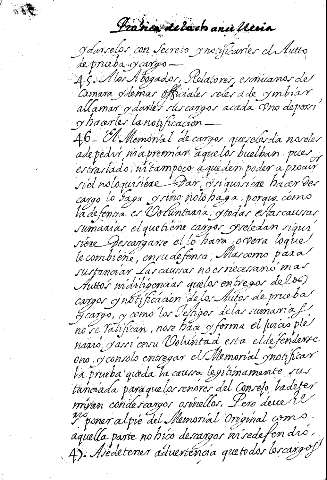 Pratica de la chancilleria
y darselos con Secreto y notificarles el Autto
de prueba y cargo —
45. A los Abogados, Relattores, escrivanos de
Camara y demas offiziales se les a de ymbiar
a llamar y darles sus cargos a cada Uno de por si
y hazerles la notificazion —
46. El Memorial de cargos que se les da no se les
a de pedir ni apremiar a que los buelban, pues
es traslado, ni tampoco a que den poder a procur
si el no lo quisiere Dar, o si quisiere hacer des
cargo lo haga y sino no lo haga, porque como
la defensa es Voluntaria, y todas estas causas
sumarias el que tiene cargos y se le dan si qui
siere Descargarse el lo hara, o vera lo que
le combiene, en su defensa, Mas como para
sustanciar las causas no es necesario mas
Auttos ni diligenzias que los entregos de los
cargos y notificazion de los Auttos de prueba
y cargo, y como los testigos de las sumarias
no se ratifican, no se haze y forma el juicio ple
nario, y assi en su Voluntad esta el defenderse
o no, y con solo entregar el Memorial y notificar
la prueba queda la causa legitimamente sus
tanciada para que los señores del Consejo la deter
minen con descargos o sin ellos. Pero deve
poner al pie del Memorial Original como
aquella parte no hizo descargos ni se defendio.
47. Ase de tener advertencia que todos los cargos